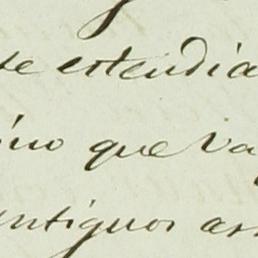 se estendia
ino que va
antiguos as